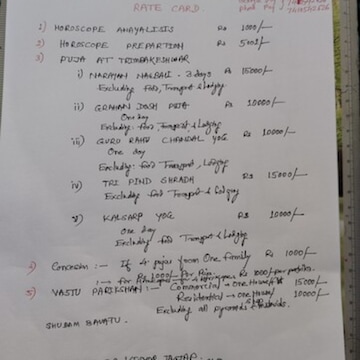 RATE CARD.
1) HOROSCOPE ANAYALISIS Rs 1000/-
2) HOROSCOPE PREPARTION Rs 500/-
3) PUJA AT TRIMBAKESHWAR
i) NARAYAN NAGBALI - 3 days Rs 15000/-
Excluding Food, Transport & Lodging
ii) GRAHAN DOSH PUJA Rs 10000/-
One Day
Excluding: food, Transport, Lodging
iii) GURU RAHU CHANDAL YOG Rs 10000/-
One day
Excluding: food Transport, Lodging
iv) TRI PIND SHRADH Rs 15000/-
Excluding food Transport & Lodging
v) KALSARP YOG RS 10000/-
One day
Excluding food Transport & Lodging
4) Concession :- If 4 pujas from One family Rs 1000/-
Rs 1000/- Per Puja
5) VASTU PARIKSHAN :- Commercial → One Hour 15000/-
Residential → one hour 10000/-
Excluding all Pyramids
SHUBAM BAVATU.